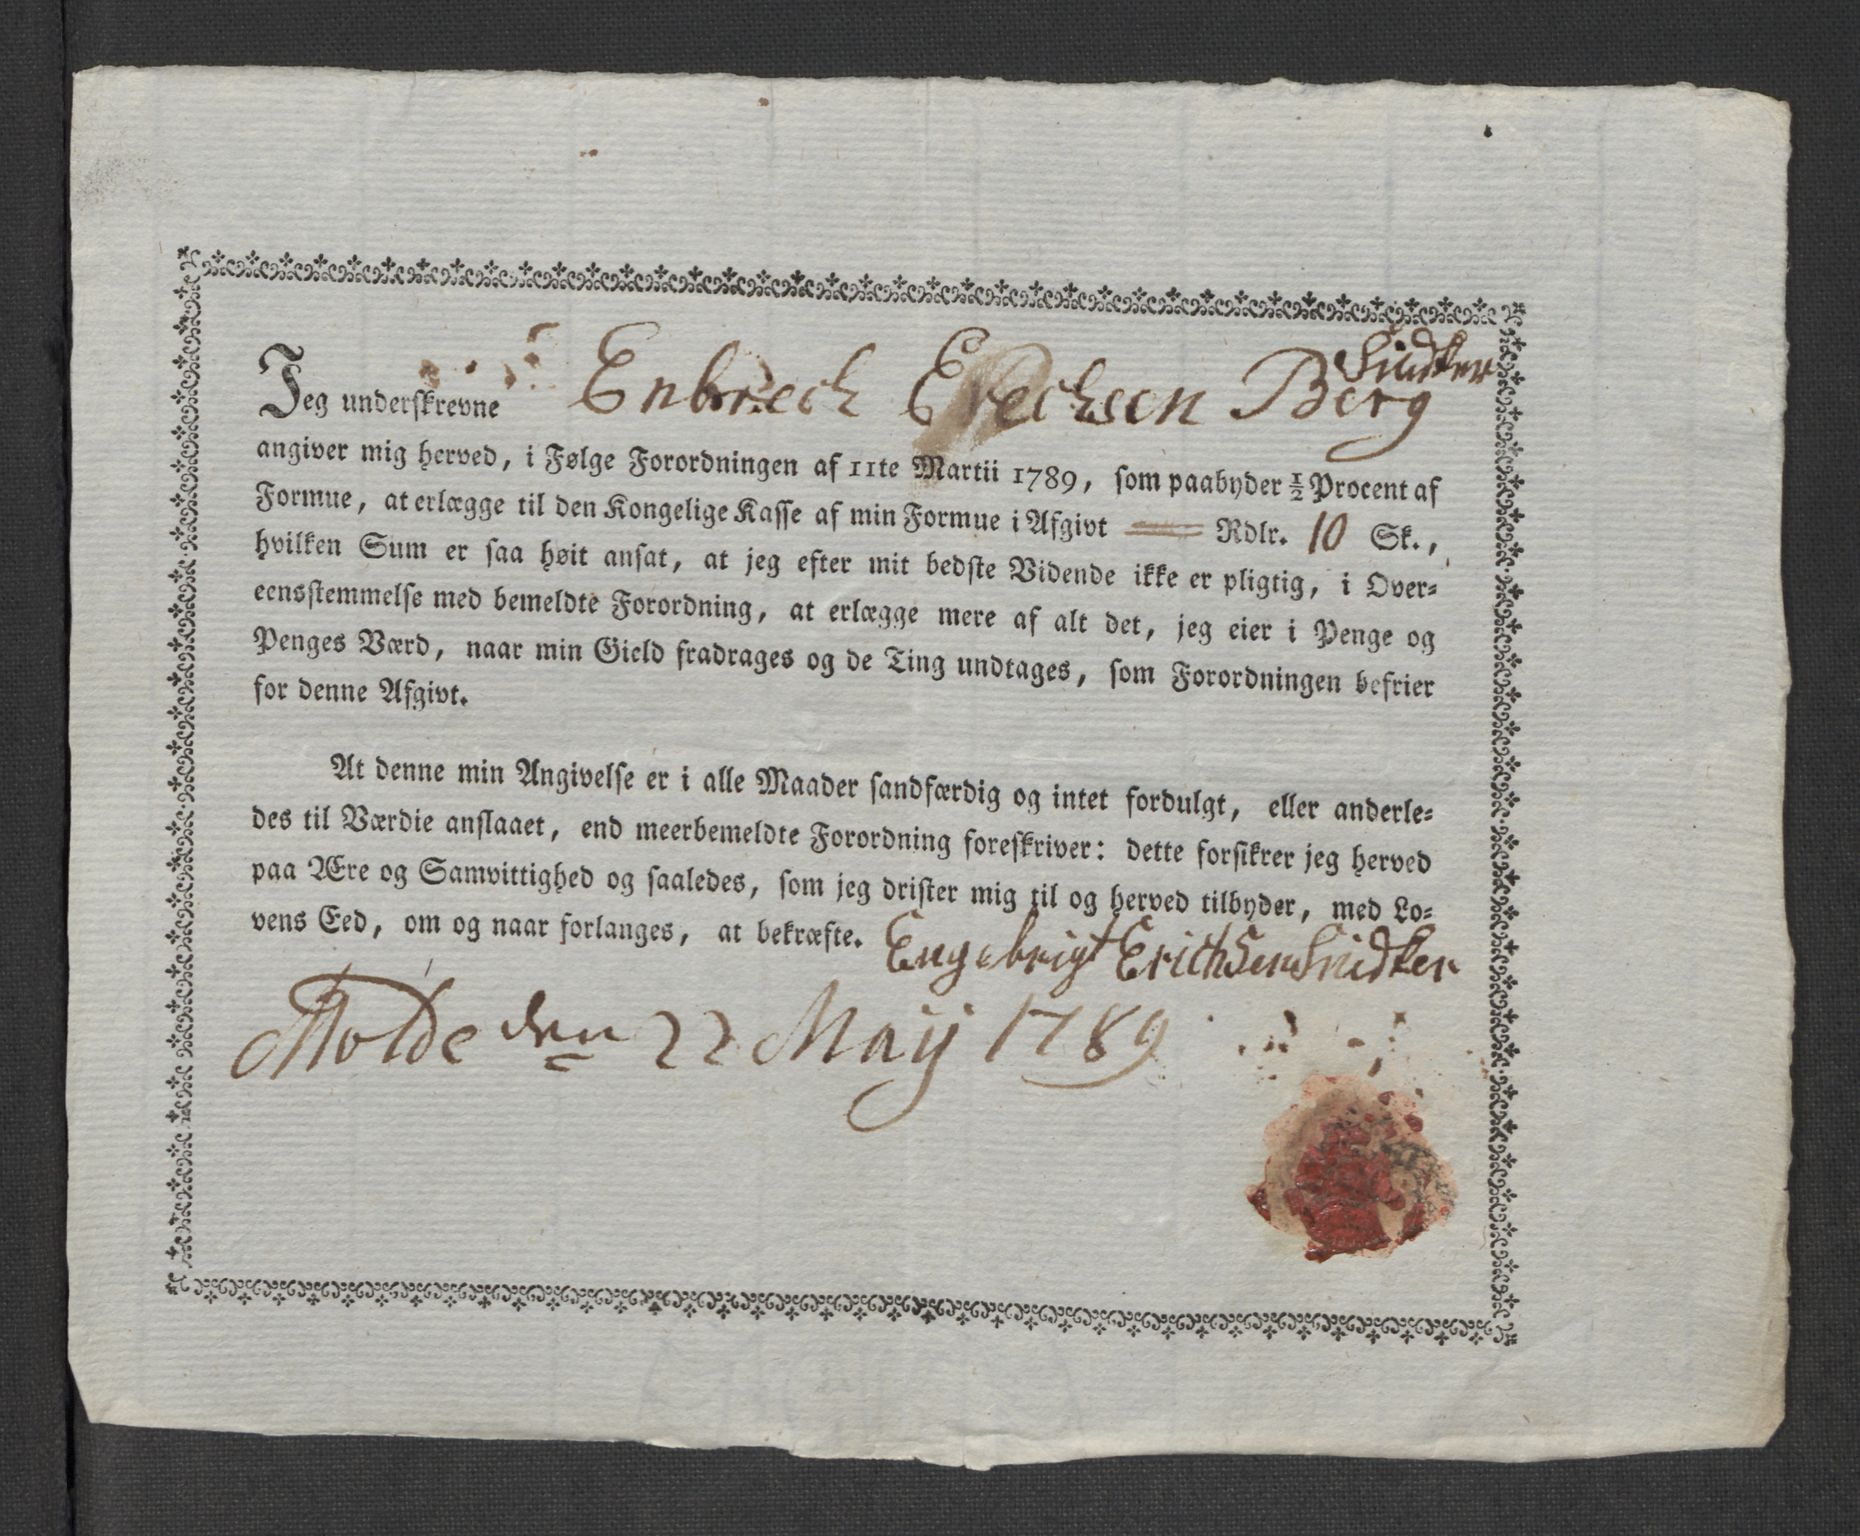 Snidker
Jeg underskrevne Enbrech Erechsen Berg
angiver mig herved, i Følge Forordningen af 11te Martii 1789, som paabyder ½ Procent af
Formue, at erlægge til den Kongelige Kasse af min Formue i Afgivt — Rdlr. 10 Sk.,
hvilken Sum er saa høit ansat, at jeg efter mit bedste Vidende ikke er pligtig, i Over-
eensstemmelse med bemeldte Forordning, at erlægge mere af alt det, jeg eier i Penge og
Penges Værd, naar min Gield fradrages og de Ting undtages, som Forordningen befrier
for denne Afgivt.
At denne min Angivelse er i alle Maader sandfærdig og intet fordulgt, eller anderle-
des til Værdie anslaaet, end meerbemeldte Forordning foreskriver: dette forsikrer jeg herved
paa Ære og Samvittighed og saaledes, som jeg drister mig til og herved tilbyder, med Lo-
vens Eed, om og naar forlanges, at bekræfte.
Engebrigt Erichsen Snidker
Molde den 22 Maij 1789